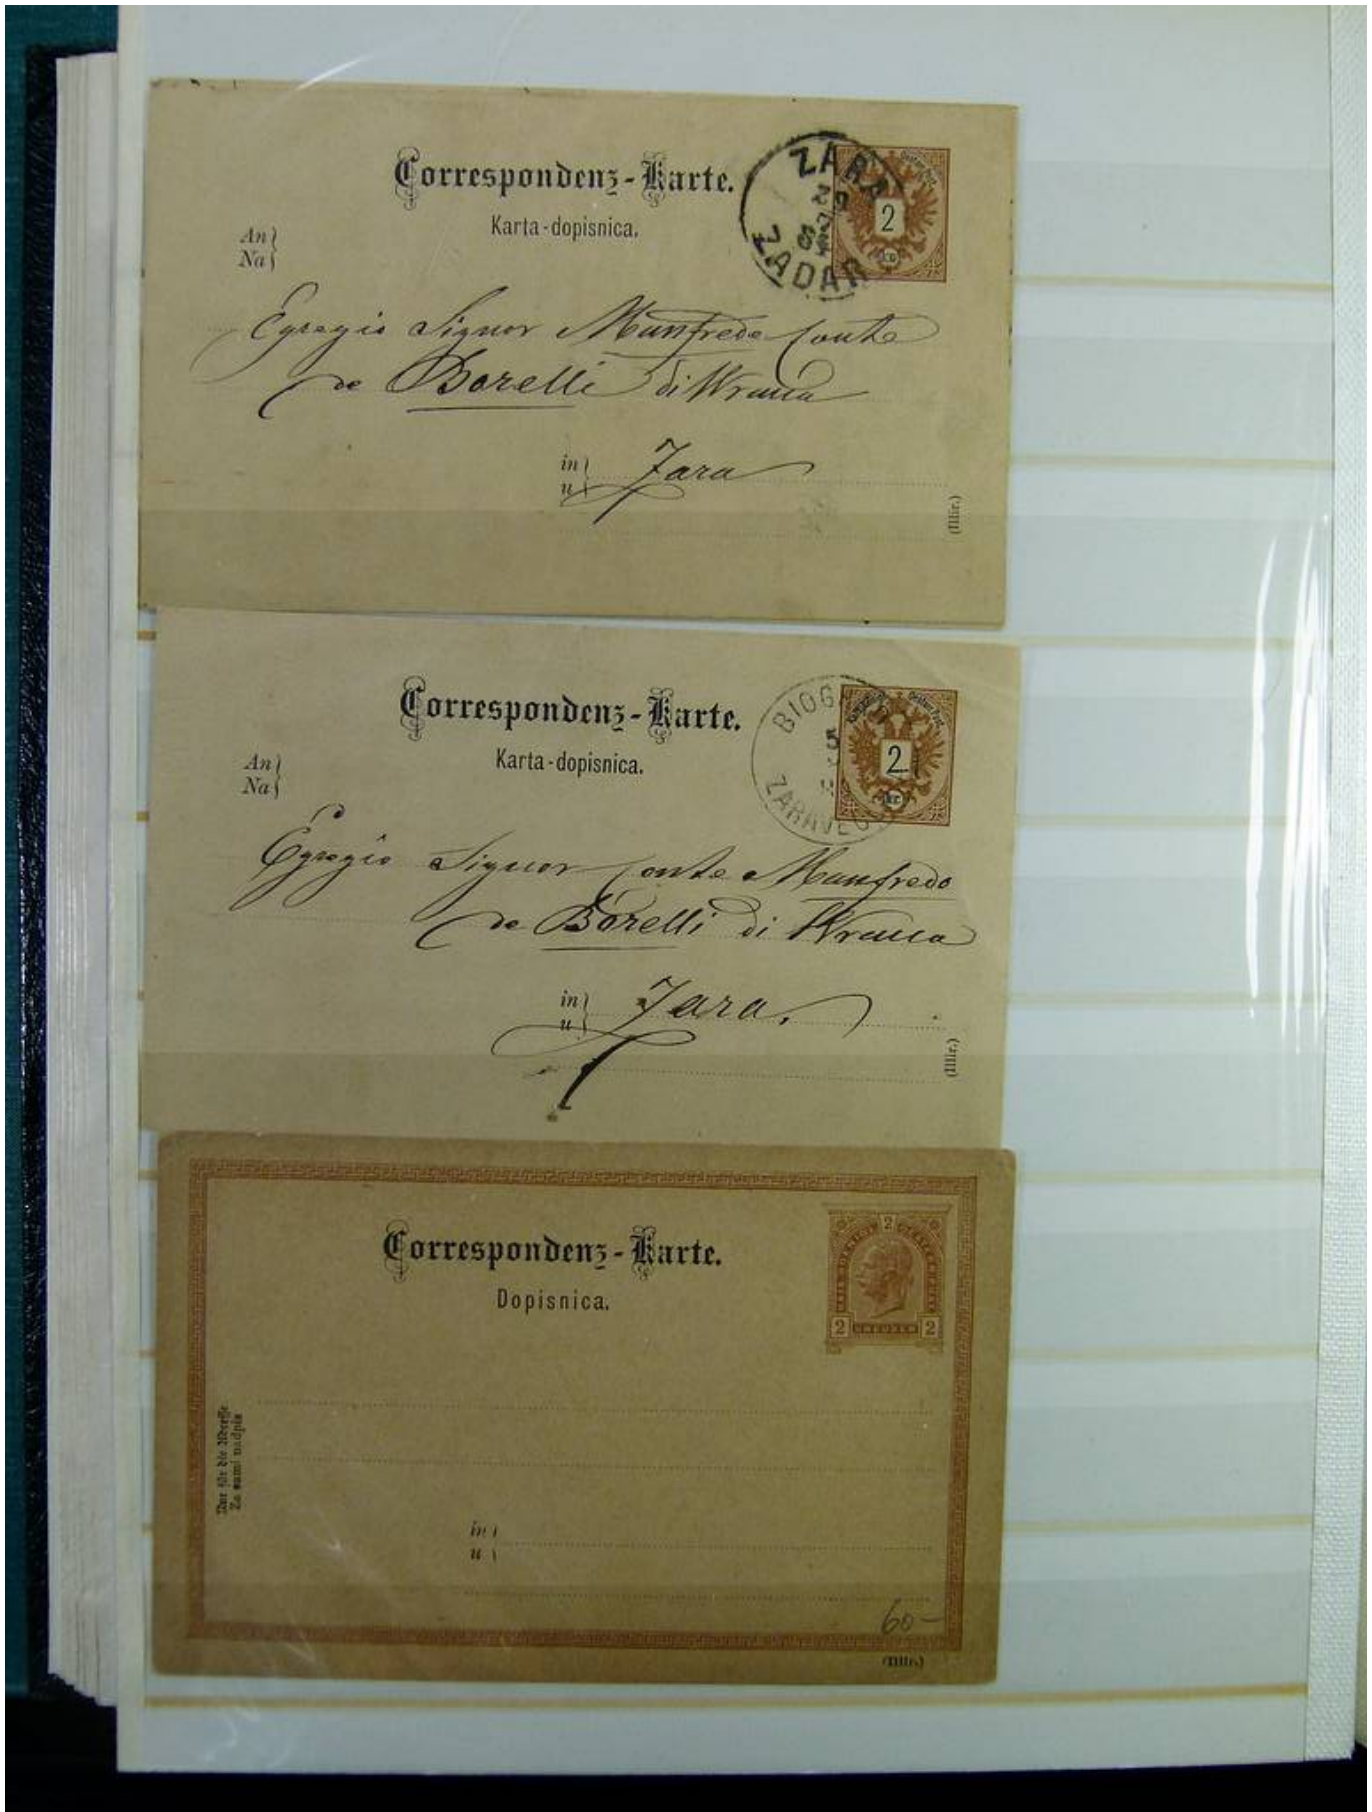 Correspondenz-Karte.
Karta-dopisnica.
An
Na
ZARA
ZADAR
2
Egregio Signor Manfredo Conte
de Borelli di Wrana
in Zara
u
(Illir.)
Correspondenz-Karte.
Karta-dopisnica.
An
Na
2
Egregio Signor Conte Manfredo
de Borelli di Wrana
in Zara.
u
(Illir.)
Correspondenz-Karte.
Dopisnica.
2
2 KREUZER 2
Nur für die Adresse
Za sami nadpis
in
u
60-
(Illir.)